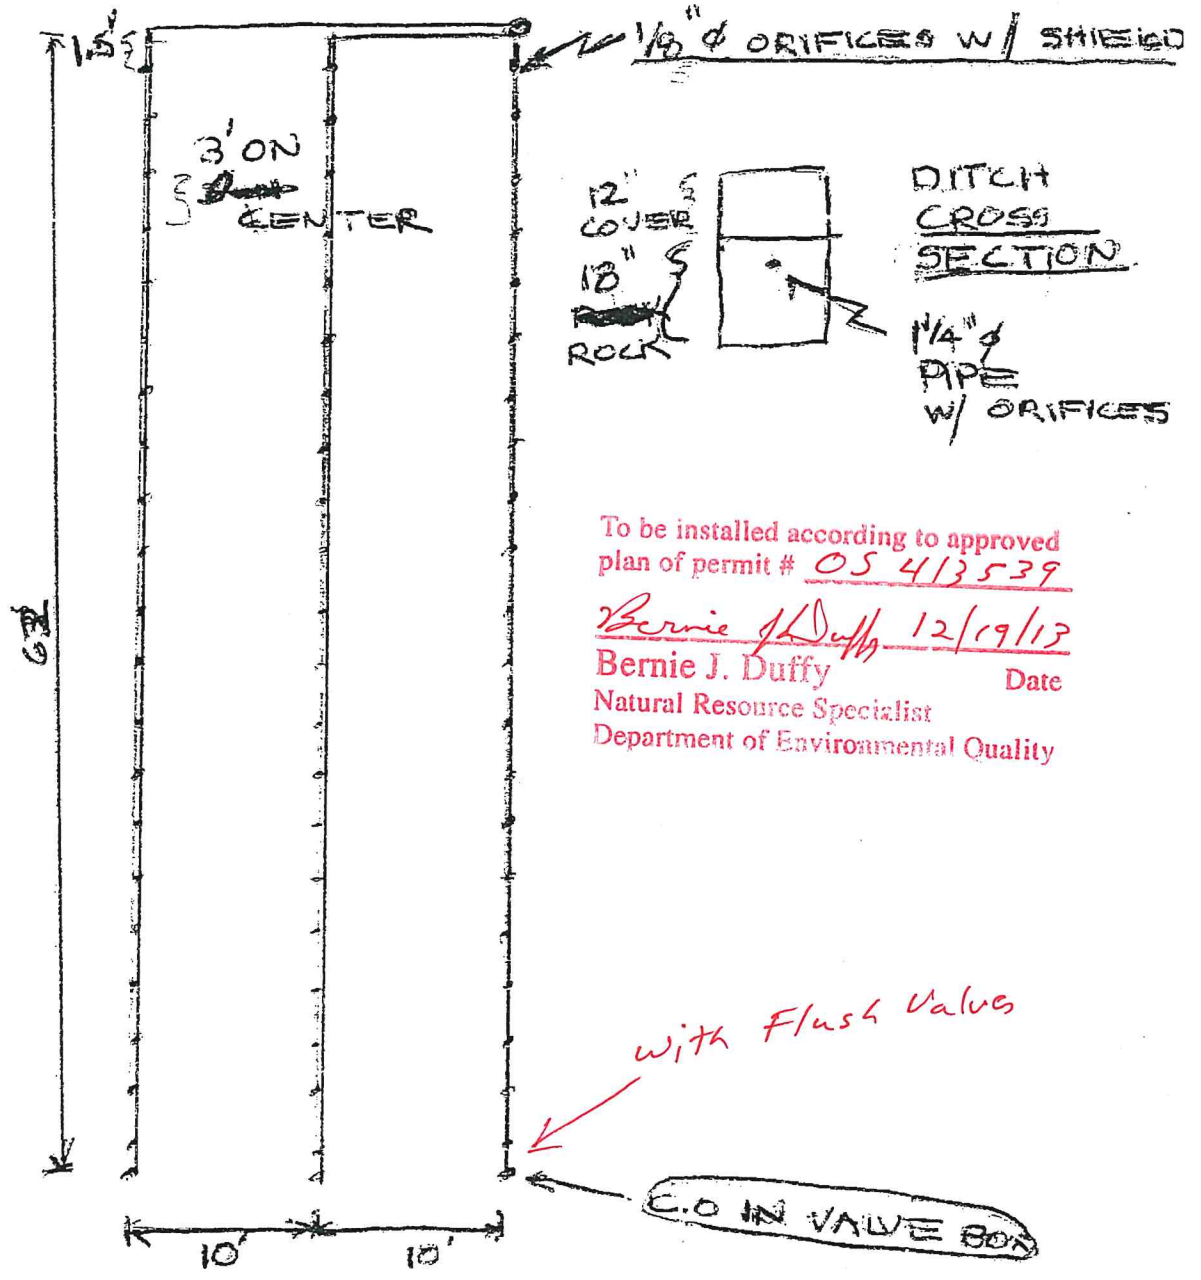 1.5'
1/8" ϕ ORIFICES W/ SHIELD
3' ON
CENTER
12"
COVER
18"
ROCK
DITCH
CROSS
SECTION
1 1/4" ϕ
PIPE
W/ ORIFICES
To be installed according to approved
plan of permit # OS 413539
Bernie J Duffy 12/19/13
Bernie J. Duffy Date
Natural Resource Specialist
Department of Environmental Quality
with Flush Valves
C.O IN VALVE BOX
10' 10'